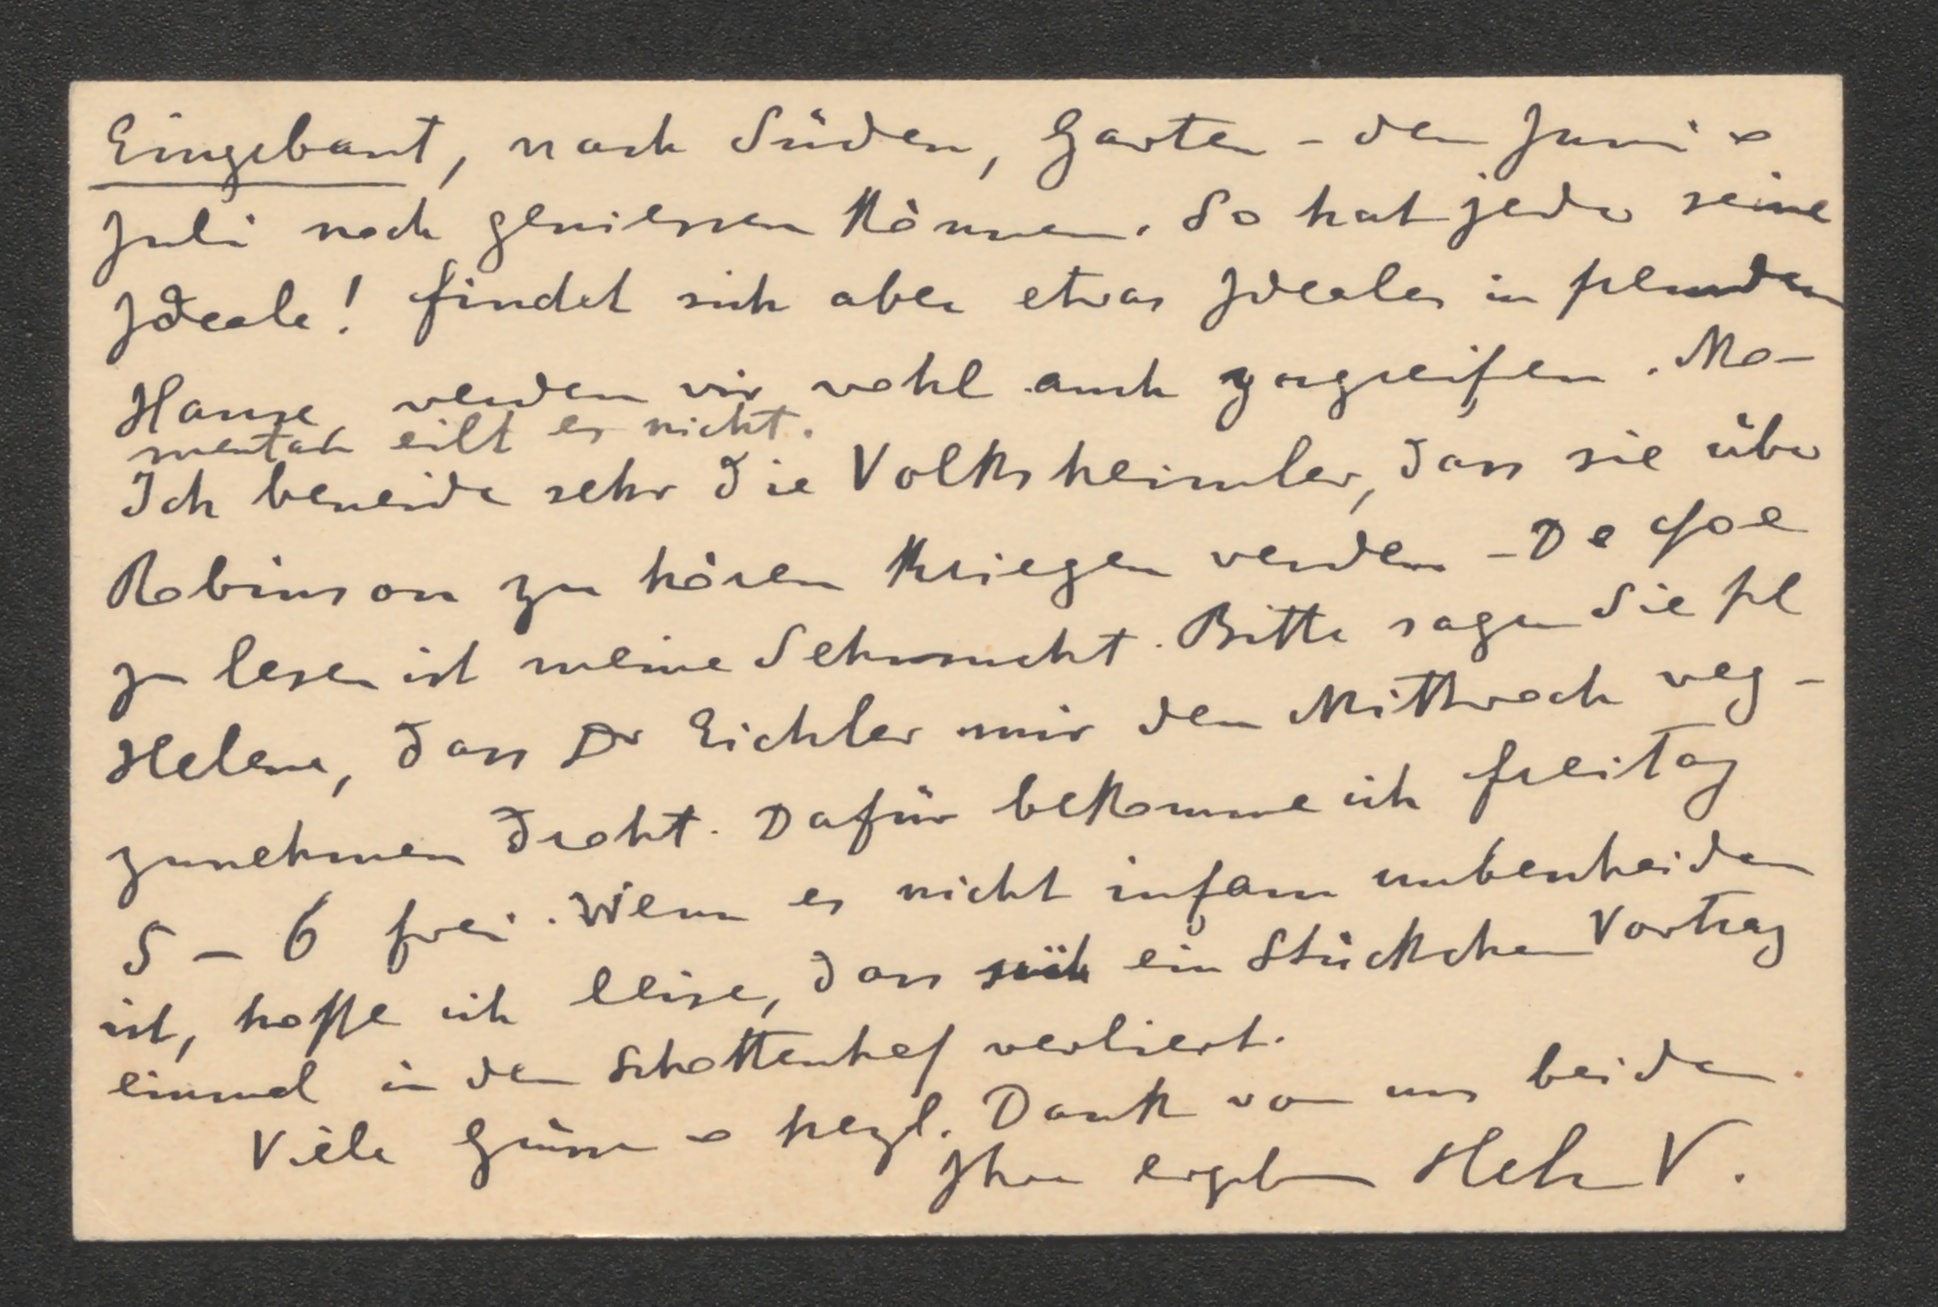 Eingebaut, nach Süden, Garten - den Juni &
Juli noch geniessen können. So hat jeder seine
Ideale! Findet sich aber etwas Ideales in fremdem
Hause werden wir wohl auch zugreifen. Mo-
mentan eilt es nicht.
Ich beneide sehr die Volksheimler, dass sie über
Robinson zu hören kriegen werden - De Foe
zu lesen ist meine Sehnsucht. Bitte sagen Sie frl
Helene, dass Dr Eichler mir den Mittwoch weg-
zunehmen droht. Dafür bekomme ich Freitag
5 - 6 frei. Wenn es nicht infam unbescheiden
ist, hoffe ich leise, dass sich ein Stückchen Vortrag
einmal in den Schottenhof verliert.
Viele Grüsse & herzl. Dank von uns beiden.
Ihre ergeb Hel V.